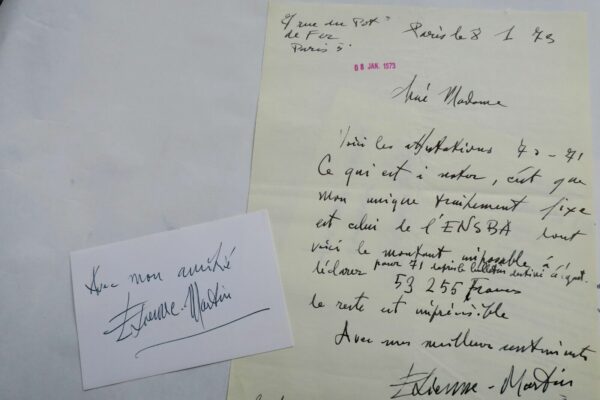 rue du Pot
de Fer
Paris 5
Paris le 8 1 73
08 JAN. 1973
Madame
Voici les 70-71
Ce qui est à noter, c'est que
mon unique traitement fixe
est celui de l'ENSBA dont
voici le montant imposable à
déclarer pour 71
53 255 Francs
le reste est imprévisible
Avec mes meilleurs sentiments
Etienne-Martin
Avec mon amitié
Etienne-Martin